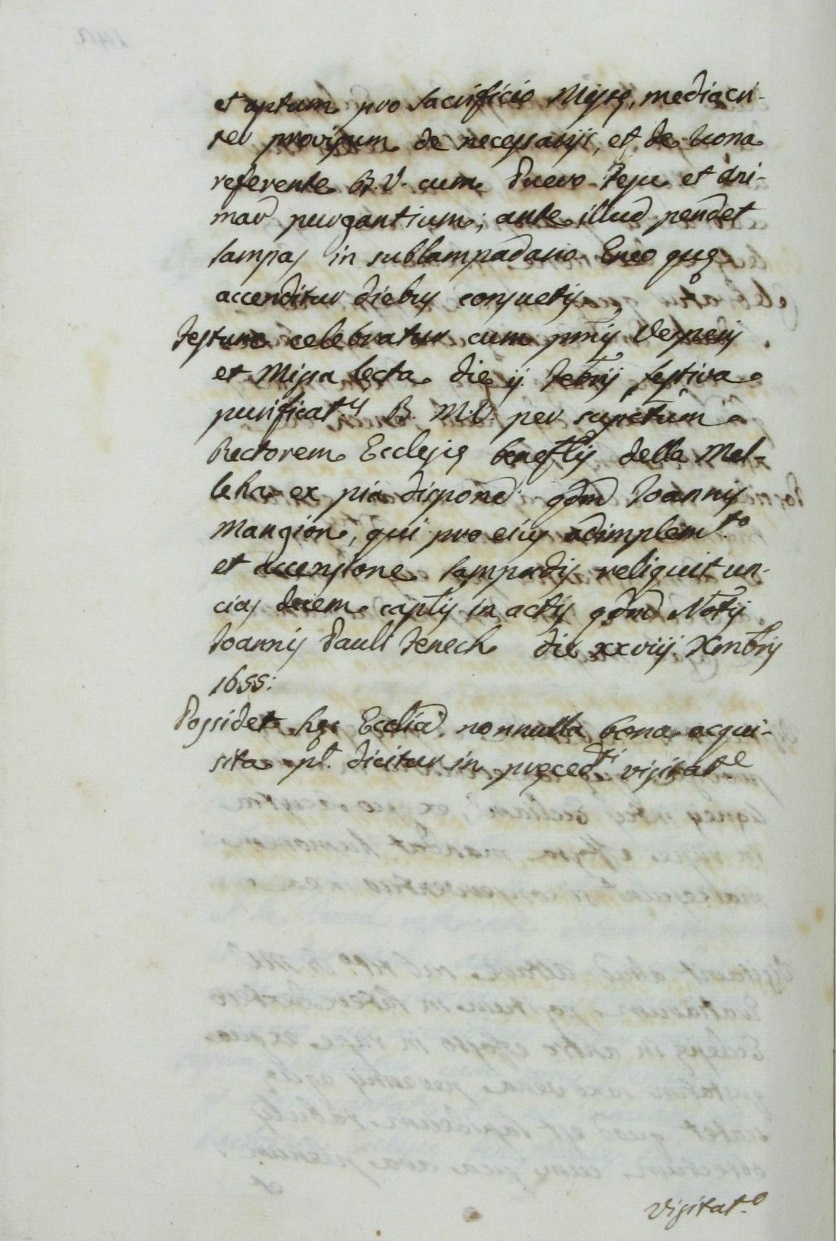 et aptum pro sacrificio Missę, mediocri-
ter provisum de necessarijs, et de Icona
referente B. V. cum Puero Jesu et Ani-
mar purgantium; ante illud pendet
lampas in sublampadario Eneo quę
accenditur diebus consuetis
Festum celebratur cum primis Vesperis
et Missa lecta die ij Febrij festiva
purificat.is B. M. V. per suprctum
Rectorem Ecclesię beneftis della Mel-
leha ex pia dispone qdm Joannis
Mangion, qui pro eius adimplem.to
et accensione lampadis reliquit un-
cias decem captis in actis qdm Notrij
Joannis Pauli Fenech die xxviij Xmbris
1655:
Possidet hęc Ecclia nonnulla bona acqui-
sita pt dicitur in pręcedti visitat.e
Visitat.o